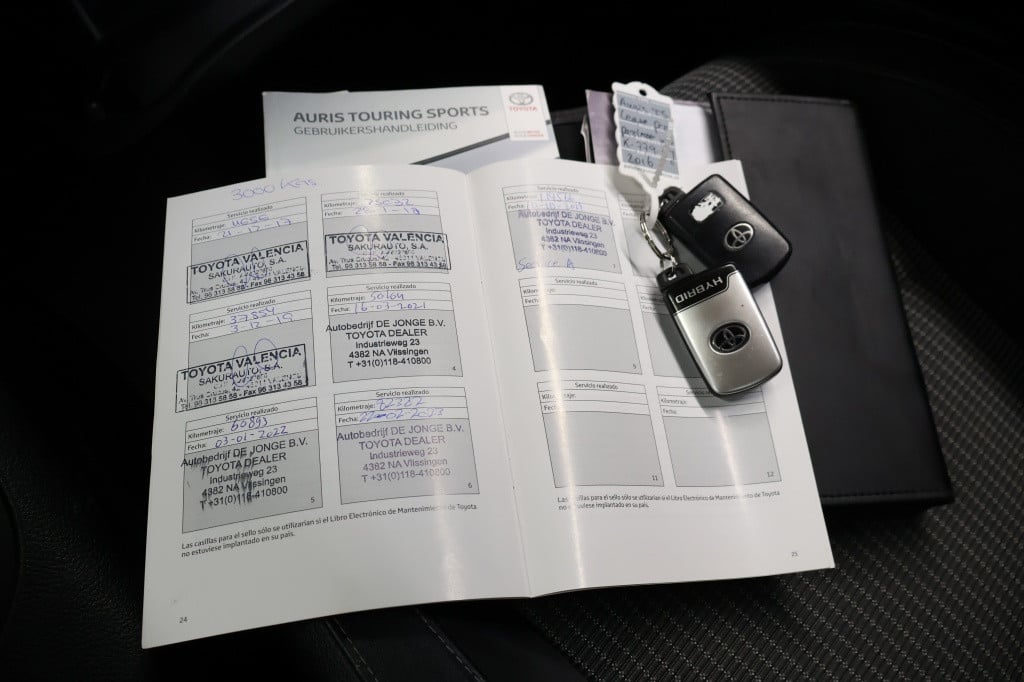 AURIS TOURING SPORTS
GEBRUIKERSHANDLEIDING
TOYOTA
2016
HYBRID
3000 Kms
Servicio realizado
Kilometraje:
Fecha: 21-12-17
TOYOTA VALENCIA
SAKURAUTO, S.A.
Tel. 96 313 58 58 - Fax 96 313 43 58
Servicio realizado
Kilometraje: 25032
Fecha:
TOYOTA VALENCIA
SAKURAUTO, S.A.
Tel. 96 313 58 58 - Fax 96 313 43 58
Servicio realizado
Kilometraje: 37554
Fecha: 3-12-19
TOYOTA VALENCIA
SAKURAUTO, S.A.
Tel. 96 313 58 58 - Fax 96 313 43 58
Servicio realizado
Kilometraje: 50104
Fecha: 16-03-2021
Autobedrijf DE JONGE B.V.
TOYOTA DEALER
Industrieweg 23
4382 NA Vlissingen
T +31(0)118-410800
4
Servicio realizado
Kilometraje: 60893
Fecha: 03-01-2022
Autobedrijf DE JONGE B.V.
TOYOTA DEALER
Industrieweg 23
4382 NA Vlissingen
T +31(0)118-410800
5
Servicio realizado
Kilometraje: 72327
Fecha:
Autobedrijf DE JONGE B.V.
TOYOTA DEALER
Industrieweg 23
4382 NA Vlissingen
T +31(0)118-410800
6
Las casillas para el sello sólo se utilizarían si el Libro Electrónico de Mantenimiento de Toyota
no estuviese implantado en su país.
24
Servicio realizado
Kilometraje:
Fecha:
Autobedrijf DE JONGE B.V.
TOYOTA DEALER
Industrieweg 23
4382 NA Vlissingen
T +31(0)118-410800
Service A
7
Servicio realizado
Kilometraje:
Fecha:
9
Servicio realizado
Kilometraje:
Fecha:
11
Servicio realizado
Kilometraje:
Fecha:
12
Las casillas para el sello sólo se utilizarían si el Libro Electrónico de Mantenimiento de Toyota
no estuviese implantado en su país.
25